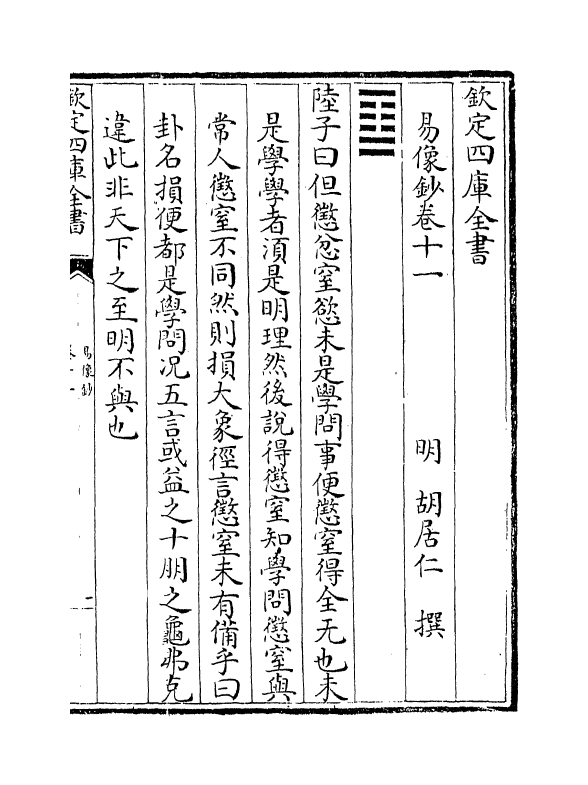 欽定四庫全書
易像鈔卷十一
明　胡居仁　撰
䷨
陸子曰但懲忿窒慾未是學問事便懲窒得全无也未
是學學者湏是明理然後說得懲窒知學問懲窒與
常人懲窒不同然則損大象徑言懲窒未有備乎曰
卦名損便都是學問况五言或益之十朋之龜弗克
違此非天下之至明不與也
欽定四庫全書
易像鈔
卷十一